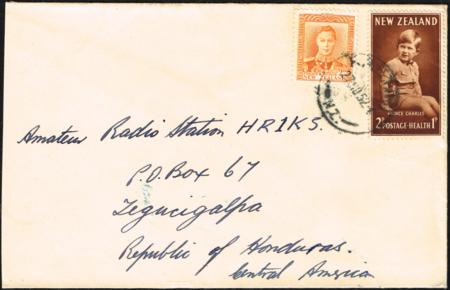 NEW ZEALAND
NEW ZEALAND
PRINCE CHARLES
2d POSTAGE-HEALTH 1d
Amateur Radio Station HR1KS.
P.O. Box 67
Tegucigalpa
Republic of Honduras.
Central America